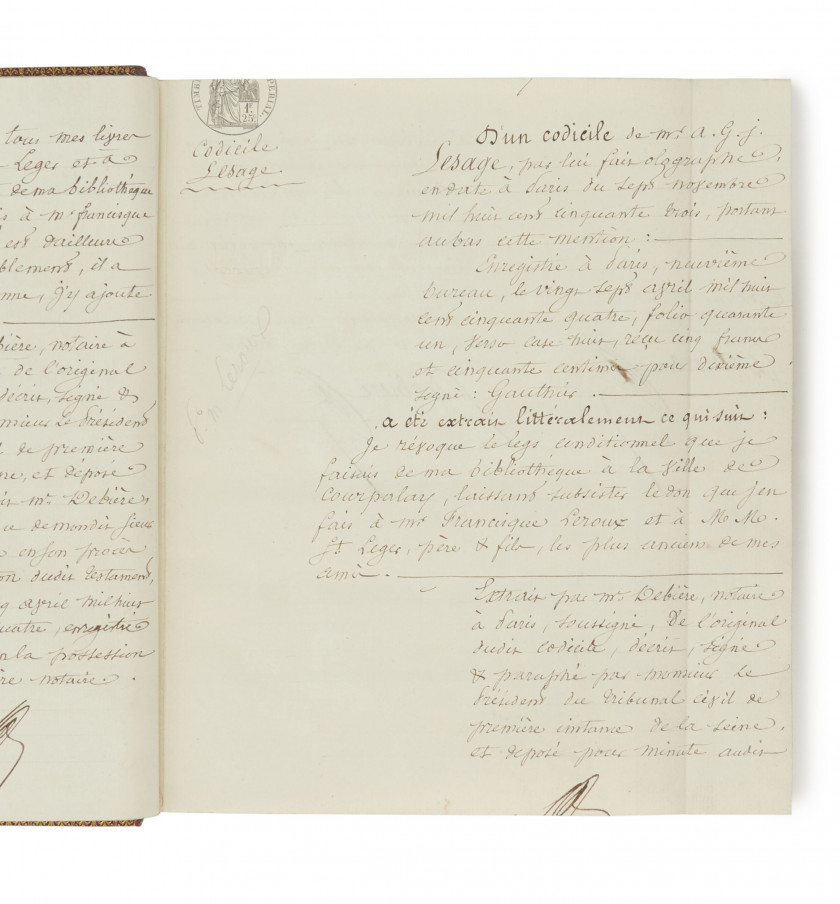 tous mes livres
Leger et à
de ma bibliothèque
à mr. francisque
est d'ailleurs
blement, il a
nne, j'y ajoute
bière, notaire à
de l'original
décrit, signé &
monsieur le Président
de première
ne, et déposé
mr. Debière,
ue de mondit sieur
en son procès
on dudit testament,
avril mil huit
quatre, enregistré
en la possession
re notaire.
TIMB
ERIAL
1f.
25c.
Codicile
Lesage.
D'un codicile de mr. A. G. J.
Lesage, par lui fait olographe,
en date à Paris du sept novembre
mil huit cent cinquante trois, portant
au bas cette mention :
Enregistré à Paris, neuvième
bureau, le vingt sept avril mil huit
cent cinquante quatre, folio quarante
un, verso case huit, reçu cinq francs
et cinquante centimes pour dixième
signé : Gauthier.
a été extrait littéralement ce qui suit :
Je révoque le legs conditionnel que je
faisais de ma bibliothèque à la Ville de
Courpalay, laissant subsister le don que j'en
fais à mr. Francisque Leroux et à M.M.
St. Leger, père & fils, les plus anciens de mes
amis.
Extrait par mr. Debière, notaire
à Paris, soussigné, de l'original
dudit codicile, décrit, signé
& paraphé par monsieur le
Président du tribunal civil de
première instance de la Seine,
et déposé pour minute audit
Leroux